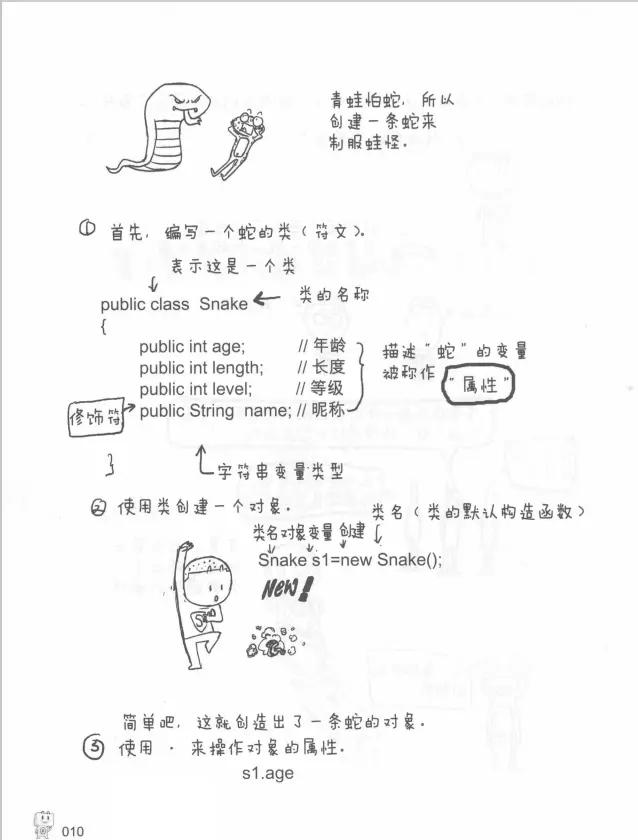 青蛙怕蛇，所以
创建一条蛇来
制服蛙怪.
① 首先，编写一个蛇的类(符文)。
表示这是一个类
public class Snake
类的名称
{
public int age; // 年龄
public int length; // 长度
public int level; // 等级
public String name; // 昵称
修饰符
描述"蛇"的变量
被称作
"属性"
}
字符串变量类型
② 使用类创建一个对象.
类名(类的默认构造函数)
类名 对象变量 创建
Snake s1=new Snake();
NEW!
简单吧，这就创造出了一条蛇的对象.
③ 使用 · 来操作对象的属性.
s1.age
010